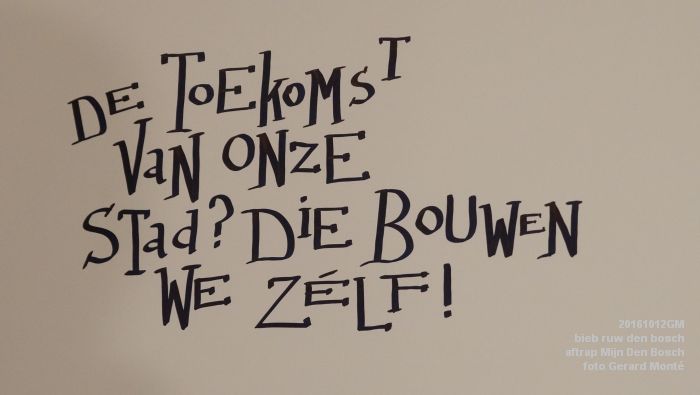 De Toekomst
Van Onze
Stad? Die Bouwen
We Zélf!
20161012GM
bieb ruw den bosch
aftrap Mijn Den Bosch
foto Gerard Monté